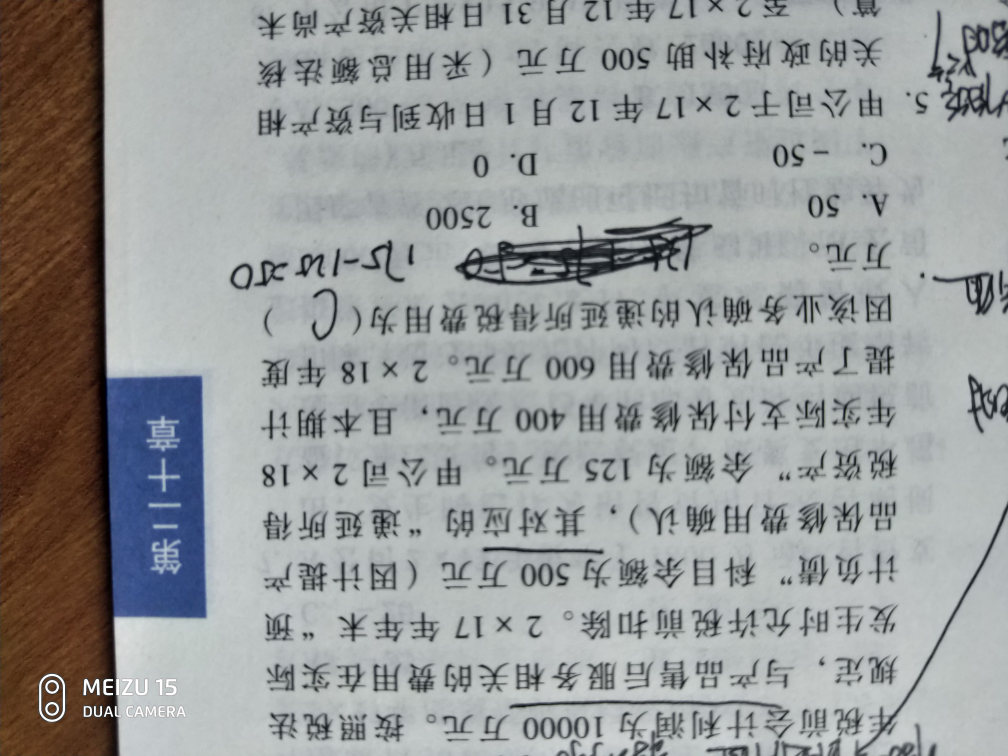 年税前会计利润为 10000 万元。按照税法
规定，与产品售后服务相关的费用在实际
发生时允许税前扣除。2×17 年年末“预
计负债”科目余额为 500 万元（因计提产
品保修费用确认），其对应的“递延所得
税资产”余额为 125 万元。甲公司 2×18
年实际支付保修费用 400 万元，且本期计
提了产品保修费用 600 万元。2×18 年度
因该业务确认的递延所得税费用为（ C ）
万元。
175-125=50
A. 50 B. 2500
C. -50 D. 0
5. 甲公司于 2×17 年 12 月 1 日收到与资产相
关的政府补助 500 万元（采用总额法核
算）至 2×17 年 12 月 31 日相关资产尚未
第二十章
MEIZU 15
DUAL CAMERA